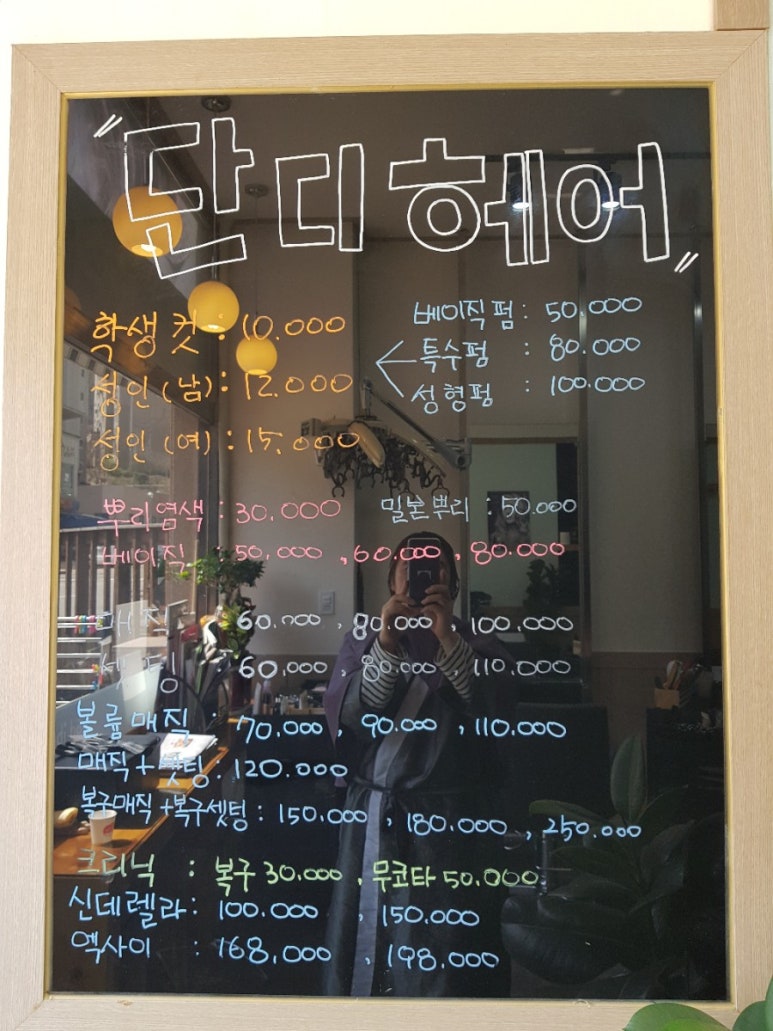 "단디헤어"
학생 컷 : 10.000
성인 (남) : 12.000
성인 (여) : 15.000
베이직펌 : 50.000
특수펌 : 80.000
성형펌 : 100.000
뿌리염색 : 30.000 밀본뿌리 : 50.000
베이직 50.000 , 60.000 , 80.000
매직 : 60.000 , 80.000 , 100.000
셋팅 : 60.000 , 80.000 , 110.000
볼륨매직 70.000 , 90.000 , 110.000
매직+셋팅 : 120.000
복구매직+복구셋팅 : 150.000 , 180.000 , 250.000
크리닉 : 복구 30.000 , 무코타 50.000
신데렐라 : 100.000 , 150.000
엑사이 : 168,000 , 198.000